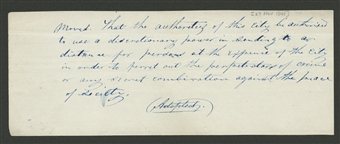 Moved. That the authority of this City be authorized
to use a discretionary power in sending to a
distance for persons at the expense of the City
in order to ferret out the perpetrators of crime
or any secret combination against the peace
of Society.
(Adopted)